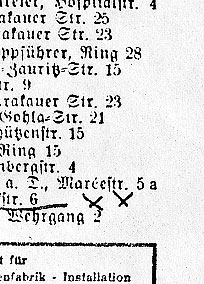 Hospitalstr. 4
akauer Str. 25
akauer Str. 23
ppführer, Ring 28
-Jauritz-Str. 15
tr. 9
Krakauer Str. 23
Gohla-Str. 21
hützenstr. 15
Ring 15
nbergstr. 4
a. D., Marcéestr. 5 a
str. 6
Wehrgang 2
t für
enfabrik - Installation